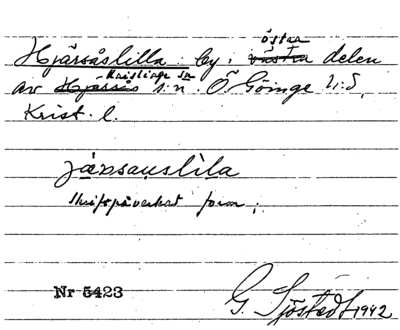 östra
Hjärsåslilla by, västra delen
Knislinge sn
av Hjärsås s:n. Ö. Göinge h:d,
Krist. l.
jænsauslila
skriftpåverkat form;
Nr 5423
G. Sjöstedt 1942